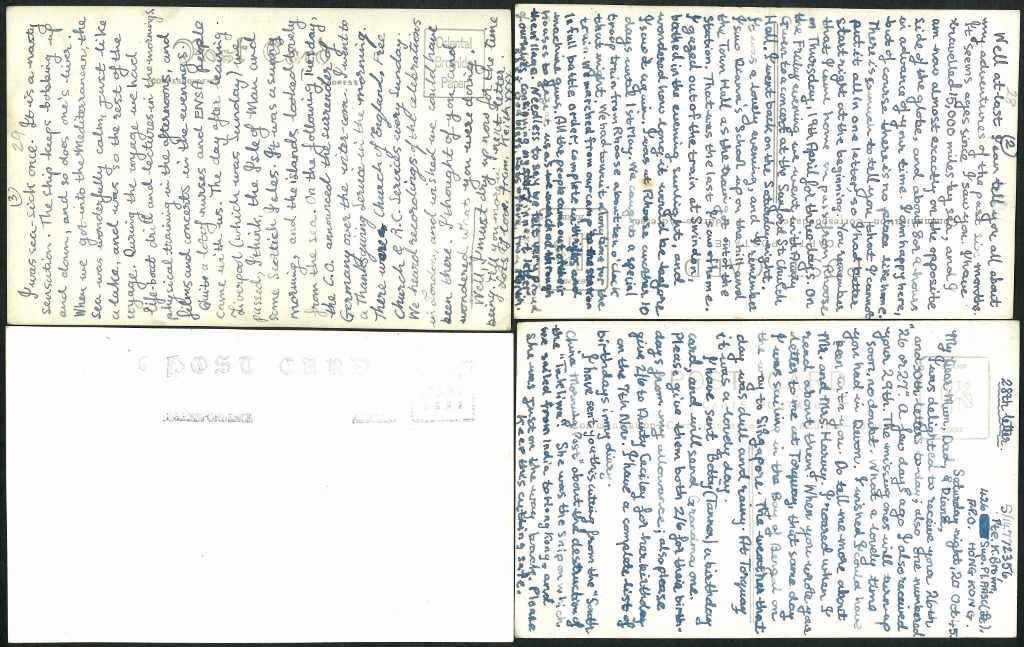 28th letter.
S/14772356
Pte R. Brown,
Sup. Pl. RASC
A.P.O. HONG KONG.
Saturday night, 20 Oct 45.
My Dear Mum, Dad,
& Diana,
I was delighted to receive your 26th
and 30th letters today; also one numbered
"26 or 27" a few days ago. I also received
your 29th. The missing ones will turn up
soon, no doubt. What a lovely time
you had in Devon. I wished I could have
been with you. Do tell me more about
Mr. and Mrs Harvey. I roared when I
read about them! When you wrote your
letter to me at Torquay, that same day
I was sailing in the Bay of Bengal on
the way to Singapore. The weather that
day was dull and rainy. At Torquay
it was a lovely day.
I have sent Betty (Tanner) a birthday
card and will send Grandma one.
Please give them both 2/6 for their birth-
days from my allowance; also please
give 2/6 to Andy Cagley for her birthday
on the 7th Nov. I have a complete list of
birthdays in my diar.
I have sent you this cutting from the "South
China Morning Post" about the destruction of
the "Takliwa". She was the ship on which
we sailed from India to Hong Kong, and
she was lost on the way back. Please
keep this cutting safe.
28
(2)
Well at last I can tell you all about
my adventures of the past six months.
It seems ages since I saw you. I have
travelled 15,000 miles by sea, and I
am now almost exactly on the opposite
side of the globe, and about 8 hours
in advance of your time. I am happy here,
but of course there's no place like home.
There is so much to tell you that I cannot
put it all in one letter, so I had better
start right at the beginning. You remember
that I came home on pass from Rhoose
on Thursday, 19th April, for three days. On
the Friday evening we went with Daisy
Green to a concert at the
Hall. I went back on the Saturday night.
It was a lovely evening, and I remember
I saw Diana's school up on the hill and
the Town Hall as the train got out of the
station. That was the last I saw of home.
I gazed out of the train at Swindon,
bathed in the evening sunlight, and
wondered how long it would be before
I saw it again. I was at Rhoose another 10
days until 1st May. We caught a special
troop train from Rhoose about ten o'clock
that night,
train. We marched from our
in full battle order, complete with
machine guns. All the people came out of their
houses to
POST CARD
CORRESPONDENCE
ADDRESS
29
(3)
I was sea-sick once. It is a nasty
sensation. The ship keeps bobbing up
and down, and so does one's liver.
When we got into the Mediterranean, the
sea was wonderfully calm, just like
a lake, and was so for the rest of the
voyage. During the voyage we had
life-boat drill and lectures in the mornings,
physical training in the afternoons and
films and concerts in the evenings.
Quite a lot of nurses and ENSA people
came with us. The day after leaving
Liverpool (which was Sunday) we
passed, I think, the Isle of Man and
some Scottish Isles. It was a superb
morning, and the islands looked lovely
from the sea. On the following Tuesday,
the C.O. announced the surrender of
Germany over the inter-com. We had
a thanksgiving service in the morning.
There were Church of England, Free
Church & R.C. Services every Sunday.
We heard recordings of the celebrations
in London and wished we could have
been there. I thought of you and
wondered what you were doing.
Well, I must dry up now for the time
being
Oriental
Bromide
Paper